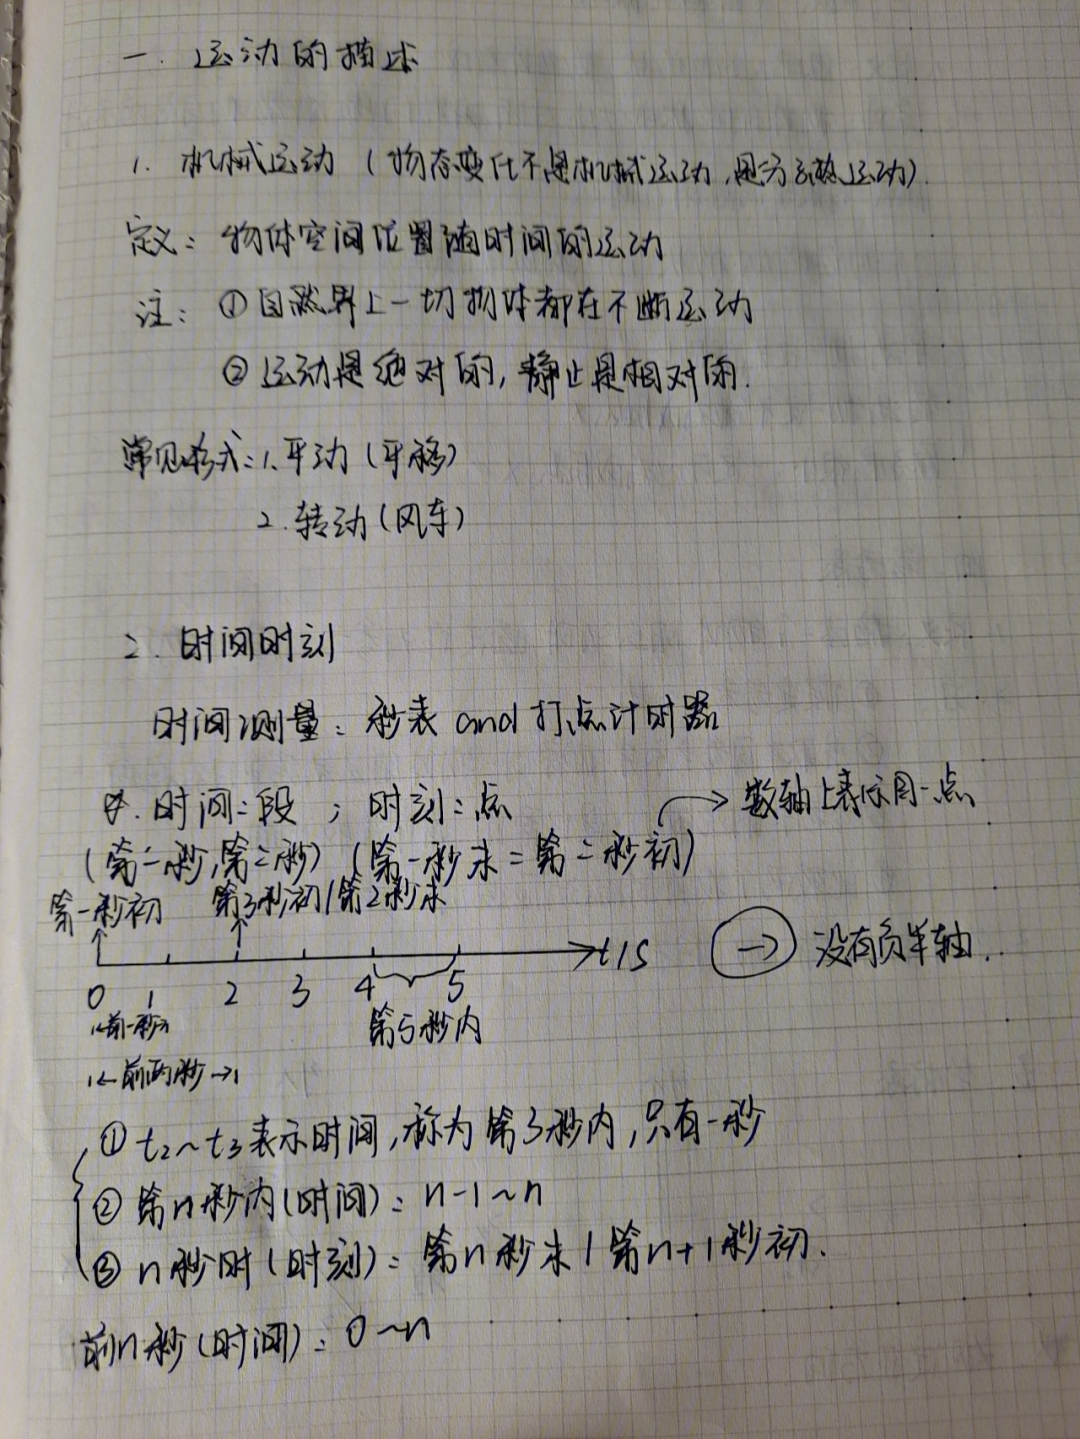 一. 运动的描述
1. 机械运动 (物态变化不是机械运动,是分子热运动).
定义: 物体空间位置随时间的运动
注: ①自然界上一切物体都在不断运动
②运动是绝对的, 静止是相对的.
常见形式: 1. 平动 (平移)
2. 转动 (风车)
2. 时间时刻
时间测量: 秒表 and 打点计时器
时间: 段 ; 时刻: 点
→ 数轴上表示同一点
(第一秒,第二秒) (第一秒末=第二秒初)
第一秒初 第3秒初/第2秒末
t/s
→ 没有负半轴.
0 1 2 3 4 5
|←前一秒→| 第5秒内
|←前两秒→|
① t₂~t₃表示时间,称为第3秒内,只有一秒
② 第n秒内(时间): n-1~n
③ n秒时(时刻): 第n秒末/第n+1秒初.
前n秒(时间): 0~n